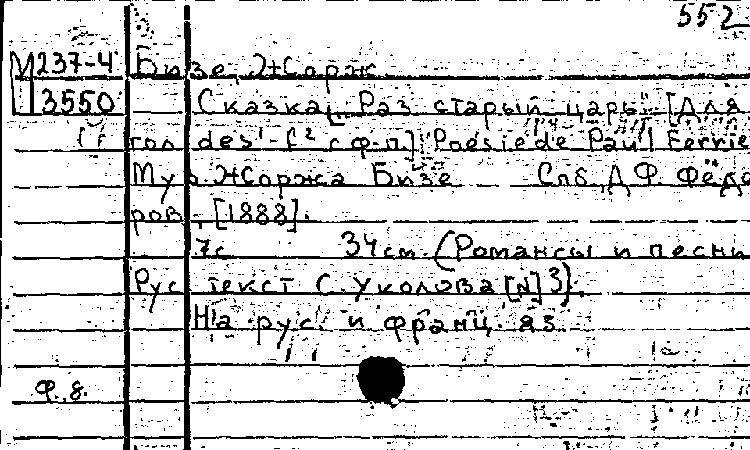 552
М237-4 Бизе, Жорж.
3550 Сказка „Раз старый царь". [Для
гол. des'-f² с ф-п] Poésie de Paul Ferrie
Муз. Жоржа Бизе Спб, Д. Ф. Фёдо
ров, [1888].
7с. 34 см. (Романсы и песни
Рус. текст С. Уколова [N] 3).
На рус. и франц. яз.
Ф. 8.